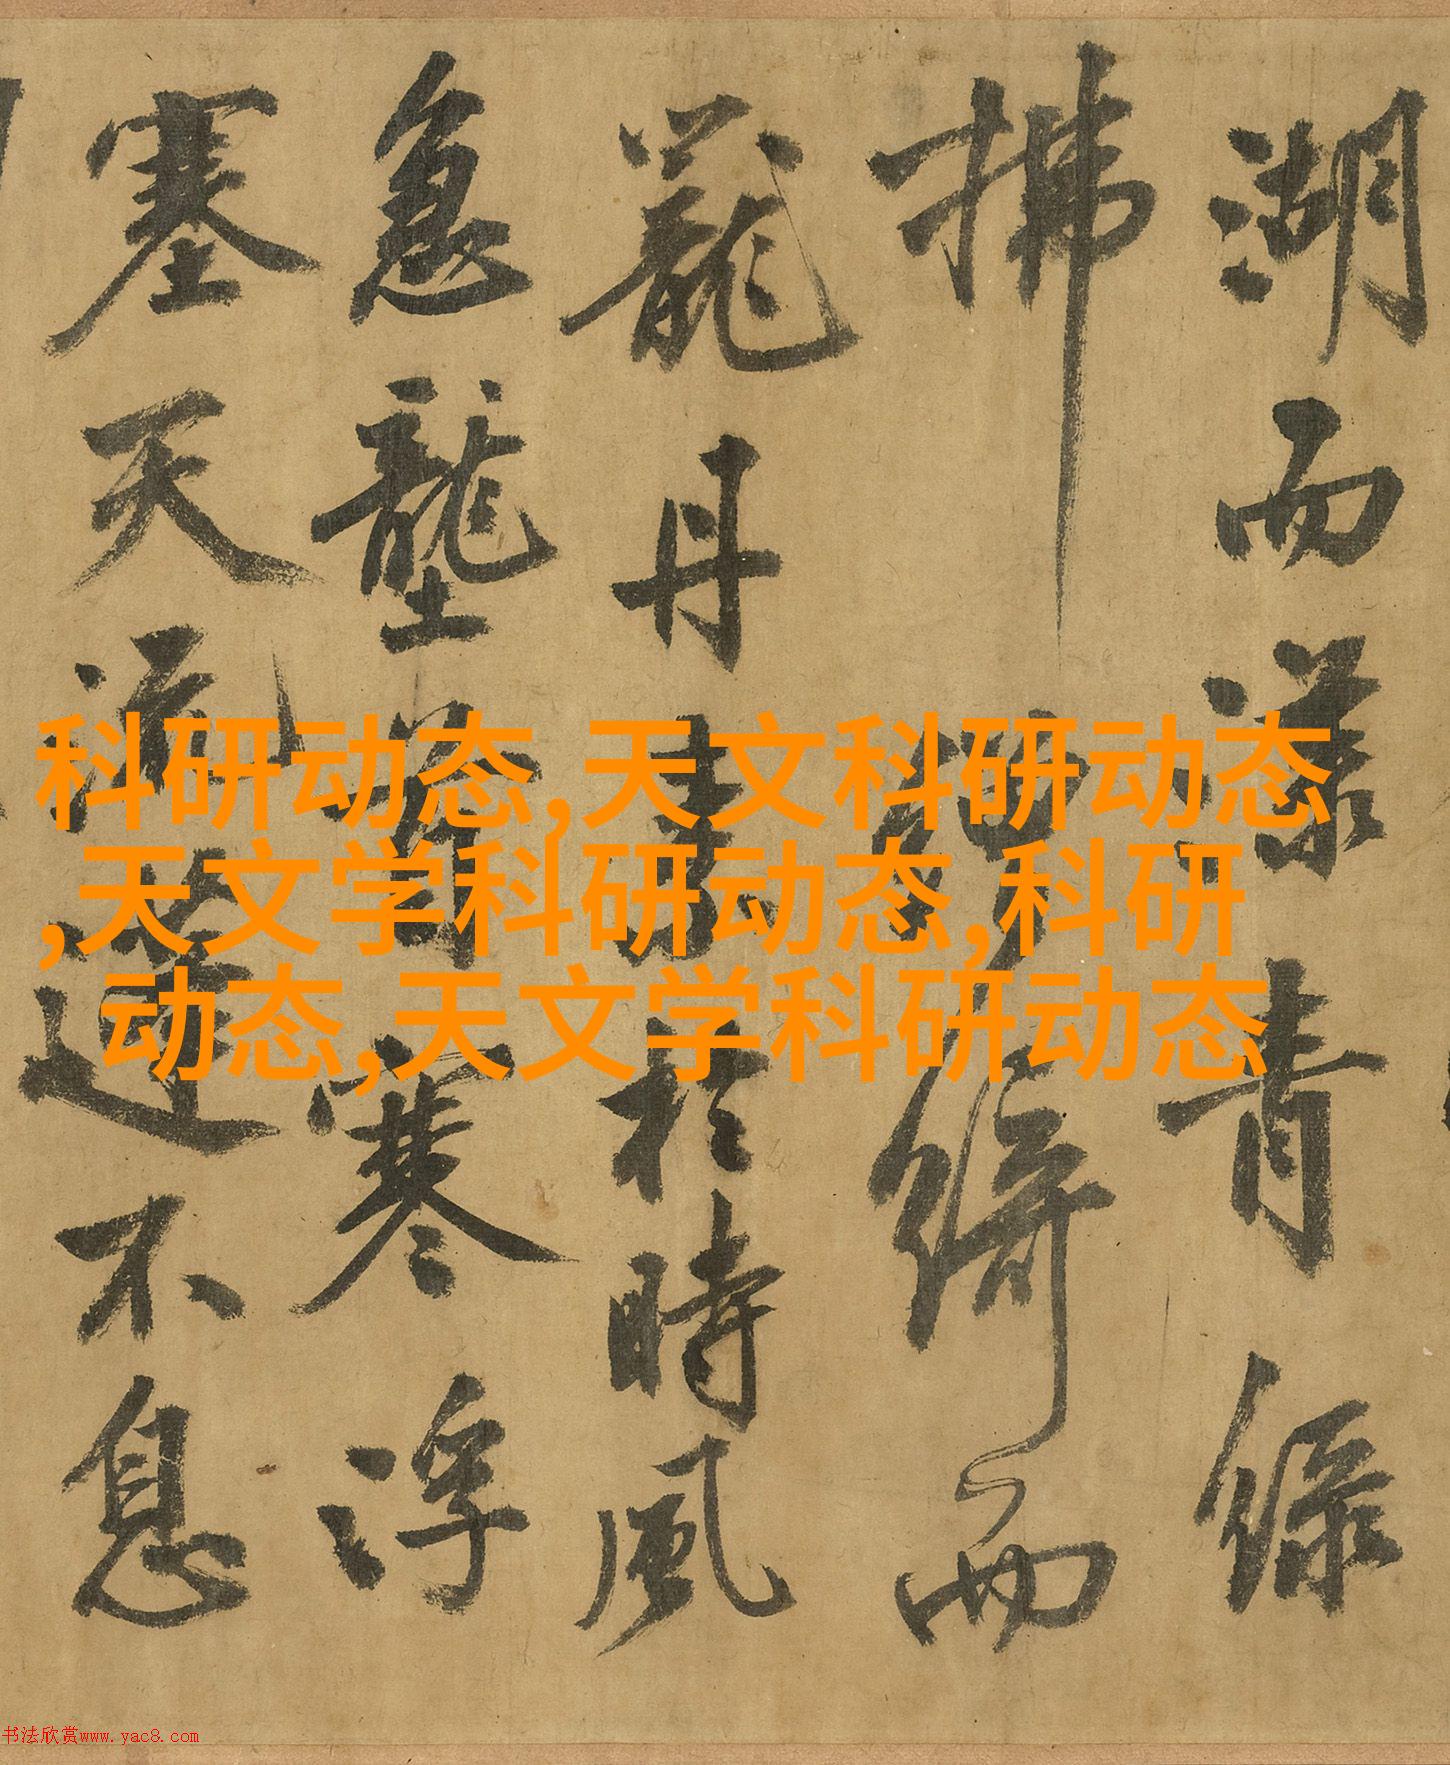 湖而漾青緑
拂綺而
蘢丹素於時風
急壟寒浮
塞天流蓬不息
科研动态,天文科研动态
,天文学科研动态,科研
动态,天文学科研动态
书法欣赏www.yac8.com